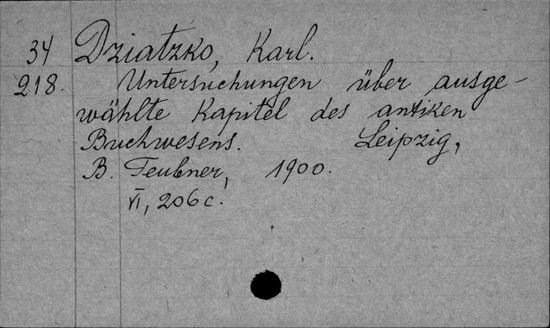 34 Dziatzko, Karl.
218. Untersuchungen über ausge-
wählte Kapitel des antiken
Buchwesens. Leipzig,
B. Teubner, 1900.
VI, 206 c.